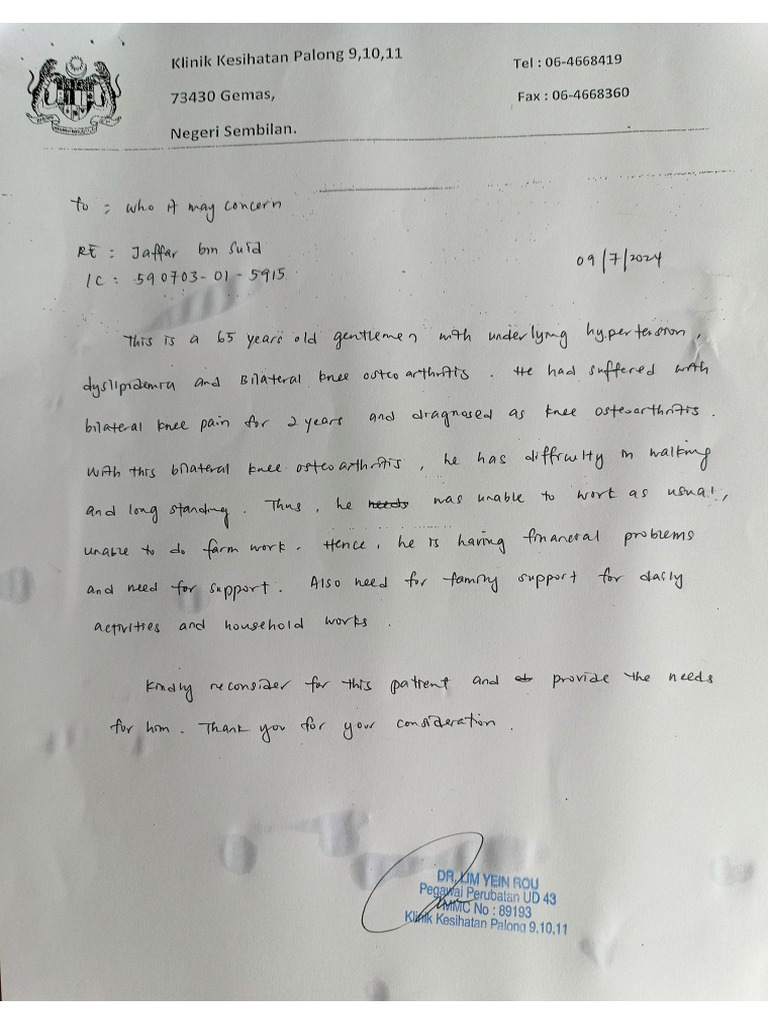 Klinik Kesihatan Palong 9,10,11
Tel : 06-4668419
73430 Gemas,
Fax : 06-4668360
Negeri Sembilan.
To : who it may concern
RE : Jaffar bin Suid
09/7/2024
IC : 590703-01-5915
This is a 65 years old gentlemen with underlying hypertension,
dyslipidemia and Bilateral knee osteoarthritis. He had suffered with
bilateral knee pain for 2 years and diagnosed as knee osteoarthritis.
With this bilateral knee osteoarthritis, he has difficulty in walking
and long standing. Thus, he needs was unable to work as usual,
unable to do farm work. Hence, he is having financial problems
and need for support. Also need for family support for daily
activities and household works.
Kindly reconsider for this patient and provide the needs
for him. Thank you for your consideration.
DR. LIM YEIN ROU
Pegawai Perubatan UD 43
MMC No : 89193
Klinik Kesihatan Palong 9,10,11